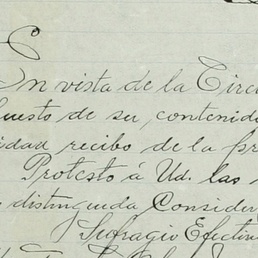 En vista de la Circ
uesto de su, contenid
idad recibo de la pr
Protesto á Ud. las
distinguida Consider
Sufragio Efectiv